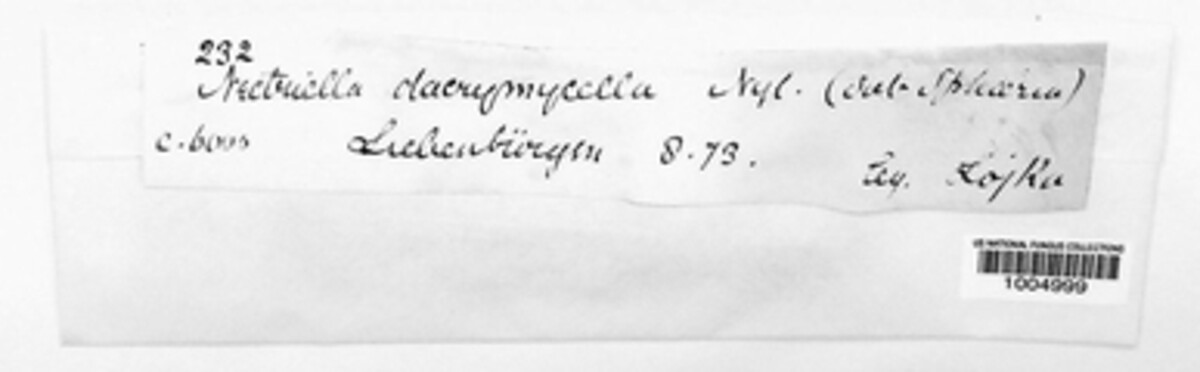 232
Nectriella dacrymycella Nyl. (sub Sphaeria)
c. 6000 Siebenbürgen 8.73.
leg. Lojka
US NATIONAL FUNGUS COLLECTIONS
1004999